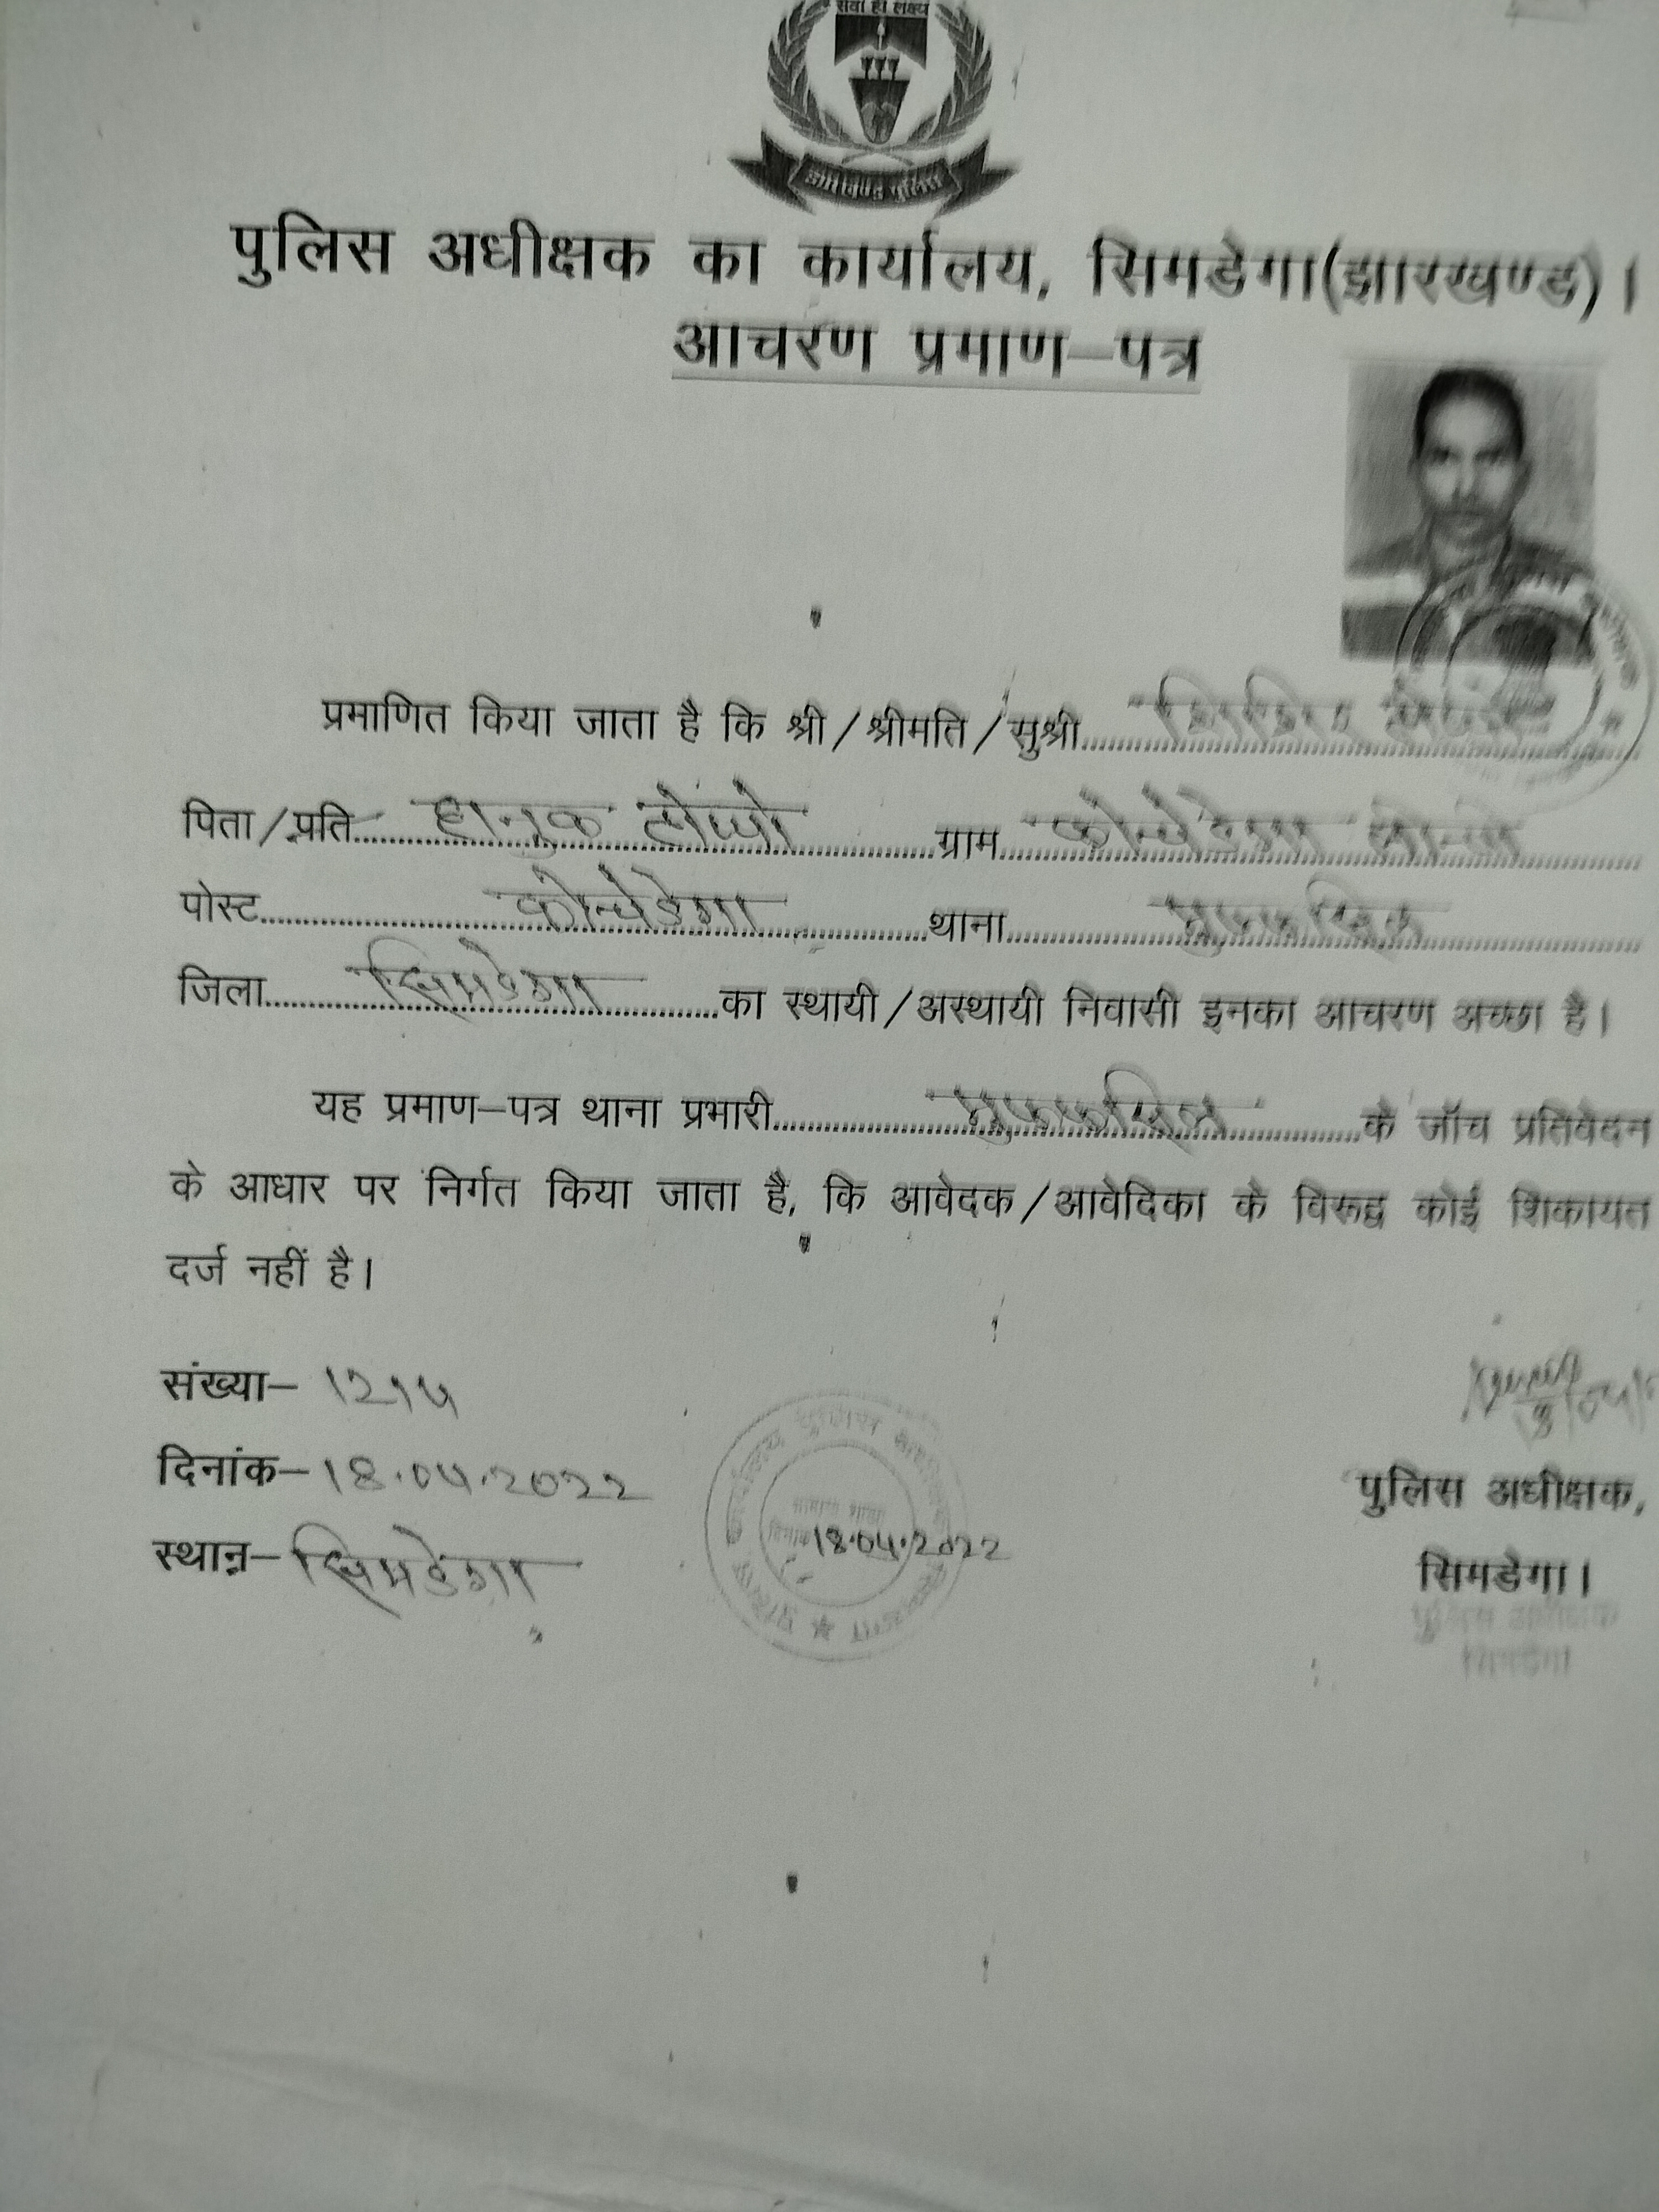 सेवा ही लक्ष्य
झारखण्ड पुलिस
पुलिस अधीक्षक का कार्यालय, सिमडेगा(झारखण्ड)।
आचरण प्रमाण–पत्र
प्रमाणित किया जाता है कि श्री/श्रीमति/सुश्री
पिता/प्रति हानुक टोप्पो ग्राम कोनमेडेगा
पोस्ट कोनमेडेगा थाना मुफस्सिल
जिला सिमडेगा का स्थायी/अस्थायी निवासी इनका आचरण अच्छा है।
यह प्रमाण–पत्र थाना प्रभारी मुफस्सिल के जॉच प्रतिवेदन
के आधार पर निर्गत किया जाता है, कि आवेदक/आवेदिका के विरूद्व कोई शिकायत
दर्ज नहीं है।
संख्या– 1214
दिनांक– 18.04.2022
18.04.2022
स्थान– सिमडेगा
पुलिस अधीक्षक,
सिमडेगा।
पुलिस अधीक्षक
सिमडेगा